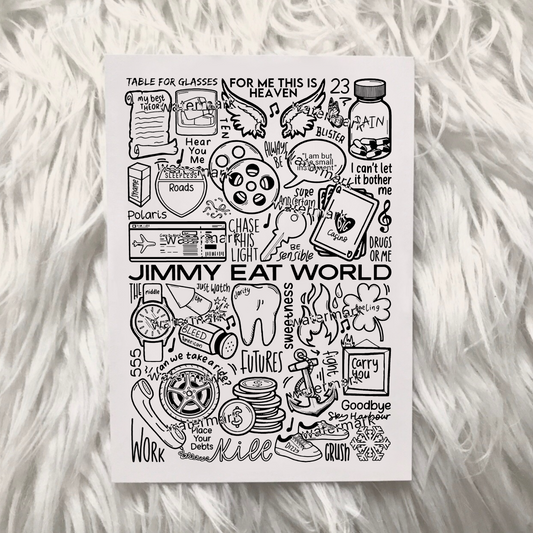 TABLE FOR GLASSES
FOR ME THIS IS
HEAVEN
23
my best
THEORY
watermark
TEN
watermark
BLISTER
PAIN
Hear
You
Me
ALWAYS
BE
"I am but
one small
instrument"
I can't let
it bother
me
SLEEPLESS
Roads
SURE
And certain
Polaris
CHASE
THIS
LIGHT
BE
Sensible
Casino
DRUGS
OR ME
watermark
JIMMY EAT WORLD
THE
middle
Just watch
the
clarity
sweetness
feeling
watermark
BLEED
american
555
can we take a ride?
FUTURES
fight
carry
you
Goodbye
Sky Harbour
WORK
Place
Your
Debts
watermark
Kill
watermark
CRUSH